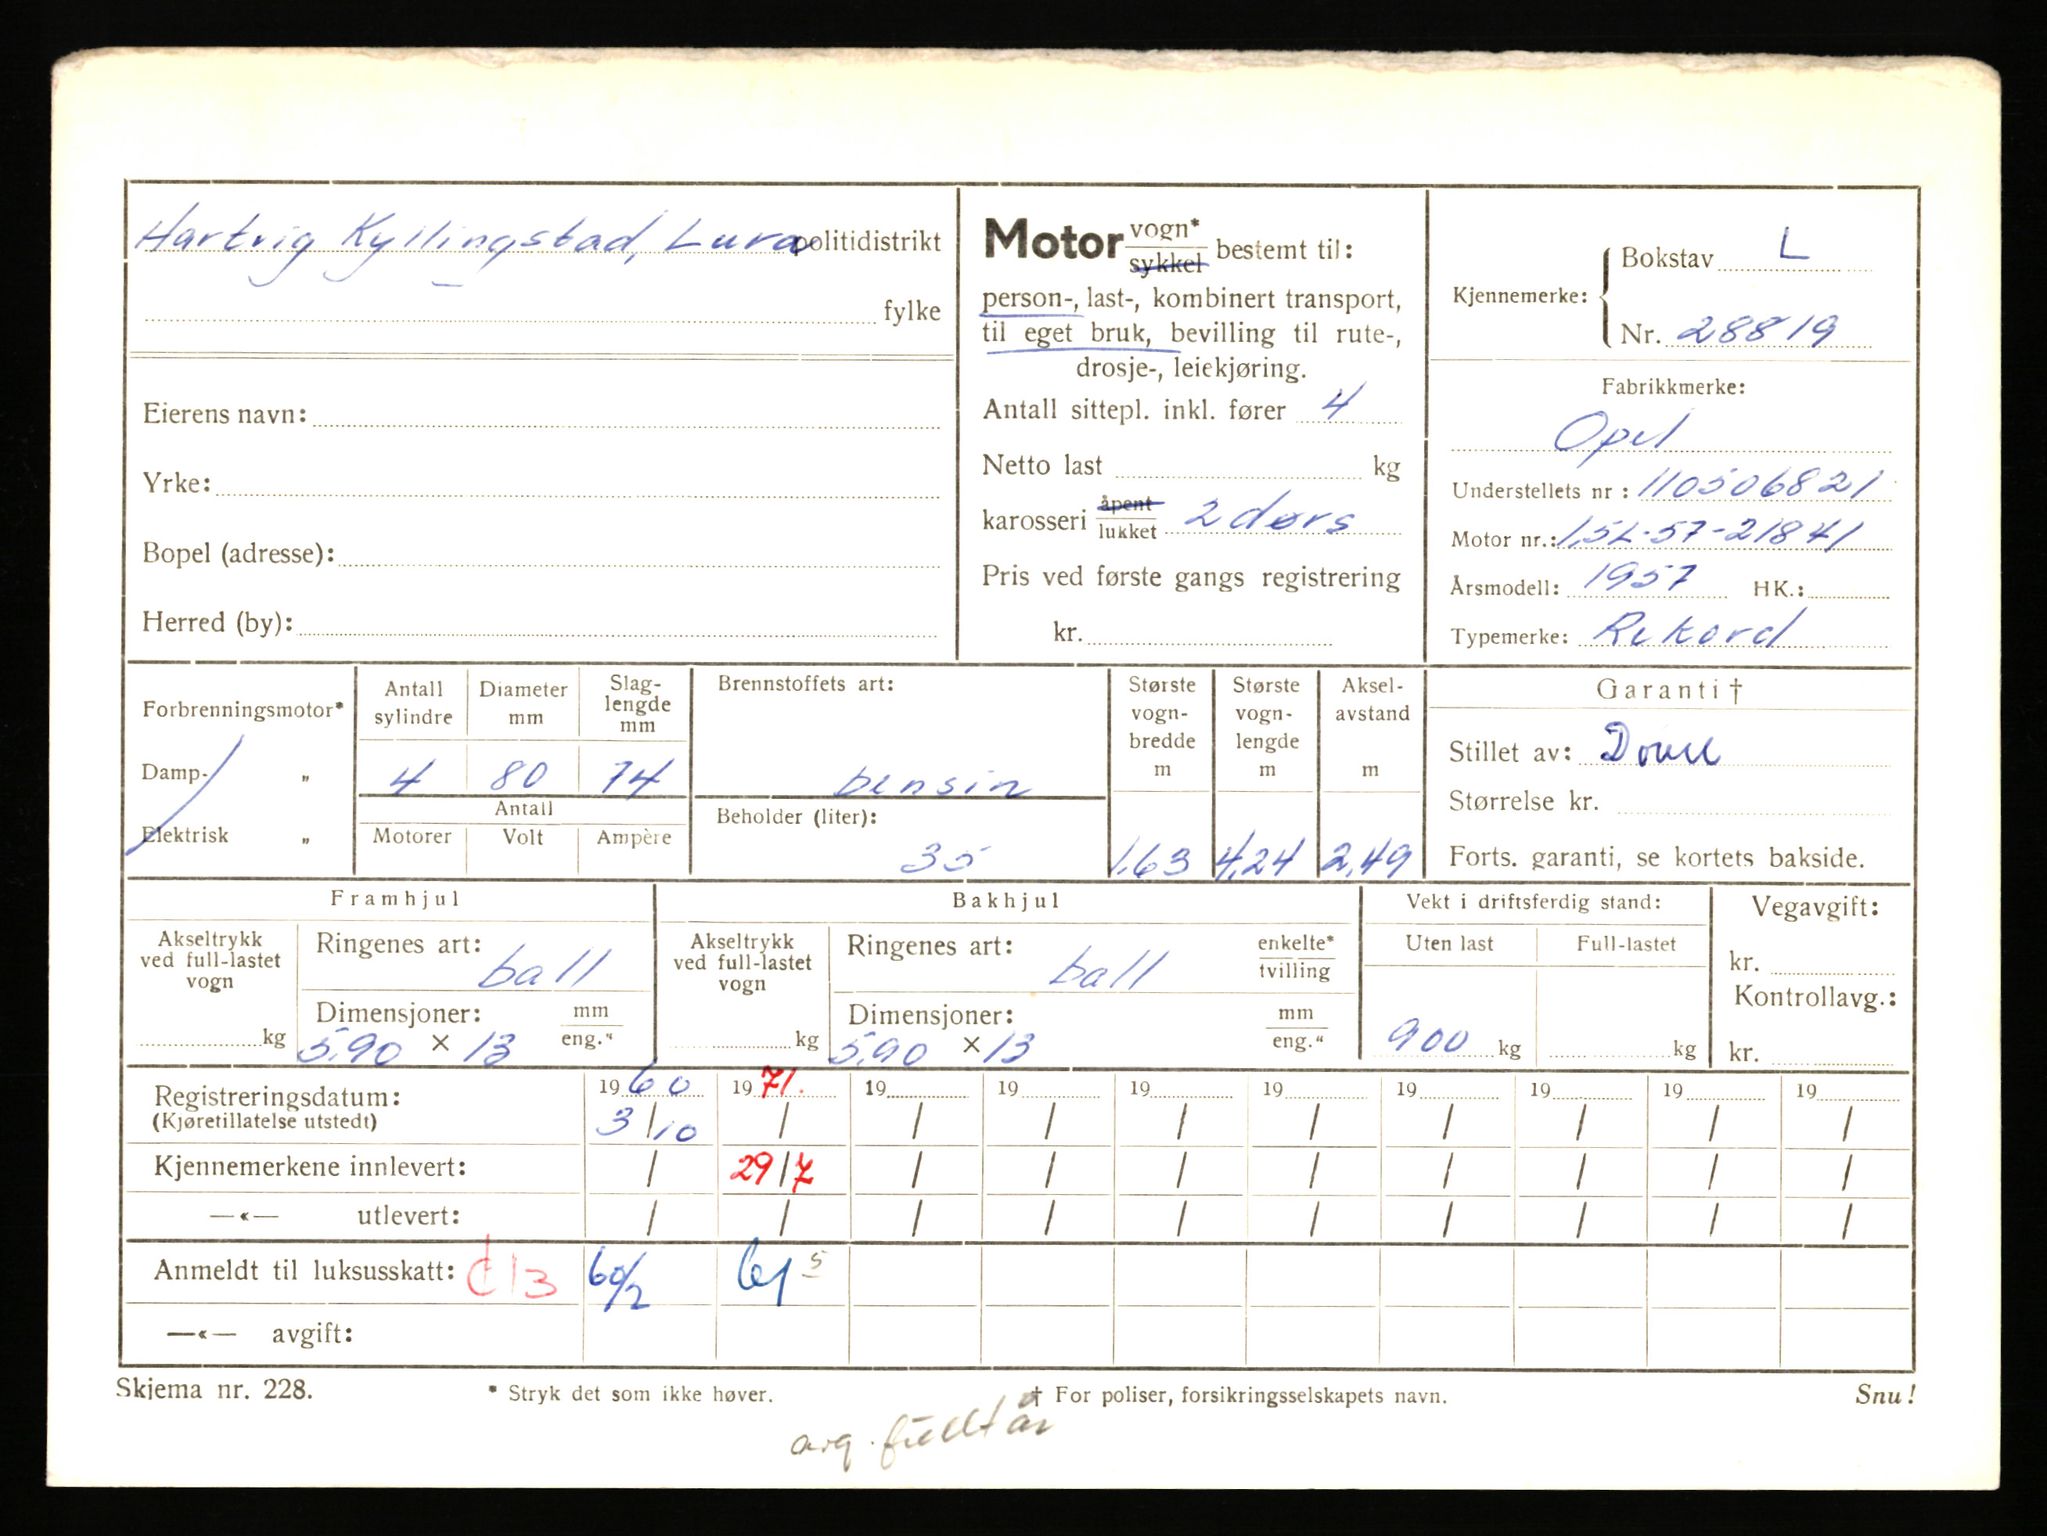 Hartvig Kyllingstad, Lura politidistrikt
fylke
Eierens navn:
Yrke:
Bopel (adresse):
Herred (by):
Motor vogn* / sykkel bestemt til:
person-, last-, kombinert transport,
til eget bruk, bevilling til rute-,
drosje-, leiekjøring.
Antall sittepl. inkl. fører 4
Netto last kg
karosseri åpent / lukket 2 dørs
Pris ved første gangs registrering
kr.
Kjennemerke: Bokstav L
Nr. 28819
Fabrikkmerke:
Opel
Understellets nr : 110506821
Motor nr.: 1,5L-57-21841
Årsmodell: 1957 HK.:
Typemerke: Rekord
Forbrenningsmotor*
Damp- „
Elektrisk „
Antall sylindre Diameter mm Slag-lengde mm
4 80 74
Antall
Motorer Volt Ampère
Brennstoffets art:
bensin
Beholder (liter):
35
Største vogn-bredde m Største vogn-lengde m Aksel-avstand m
1,63 4,24 2,49
Garanti †
Stillet av:
Størrelse kr.
Forts. garanti, se kortets bakside.
Framhjul
Akseltrykk ved full-lastet vogn
kg
Ringenes art: ball
Dimensjoner: mm / eng."
5,90 × 13
Bakhjul
Akseltrykk ved full-lastet vogn
kg
Ringenes art: ball enkelte* / tvilling
Dimensjoner: mm / eng."
5,90 × 13
Vekt i driftsferdig stand:
Uten last Full-lastet
900 kg kg
Vegavgift:
kr.
Kontrollavg.:
kr.
Registreringsdatum: 1960 1971. 19 19 19 19 19 19 19 19
(Kjøretillatelse utstedt) 3/10 / / / / / / / / /
Kjennemerkene innlevert: / 29/7 / / / / / / / /
—«— utlevert: / / / / / / / / / /
Anmeldt til luksusskatt: 60/2 61 5
—«— avgift:
Skjema nr. 228. * Stryk det som ikke høver. † For poliser, forsikringsselskapets navn. Snu!